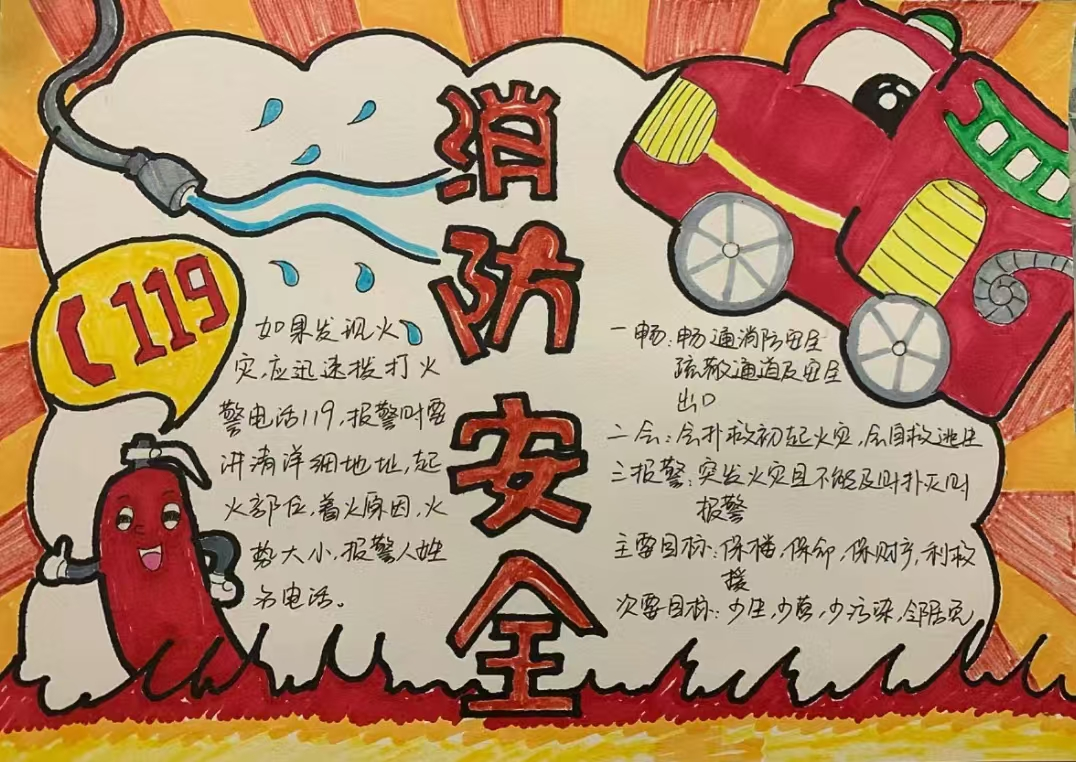 消防安全
119
如果发现火
灾,应迅速拨打火
警电话119,报警时要
讲清洋细地址,起
火部位,着火原因,火
势大小,报警人姓
名电话。
一畅:畅通消防安全
疏散通道及安全
出口
二会:会扑救初起火灾,会自救逃生
三报警:突发火灾且不能及时扑灭时
报警
主要目标:保楼,保命,保财产,利救
援
次要目标:少生,少蔓,少污染,邻居无